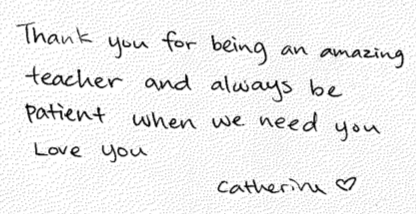 Thank you for being an amazing
teacher and always be
patient when we need you
Love you
Catherine ♡